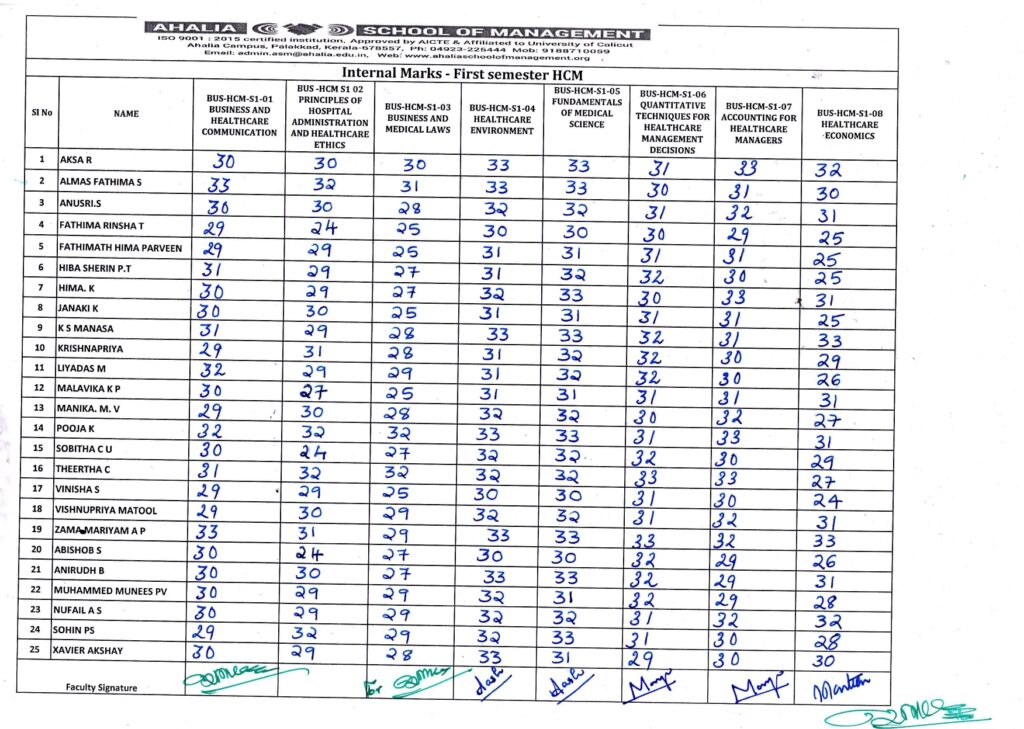 AHALIA SCHOOL OF MANAGEMENT
ISO 9001 : 2015 certified institution, Approved by AICTE & Affiliated to University of Calicut
Ahalia Campus, Palakkad, Kerala-678557, Ph: 04923-225444 Mob: 9188710059
Email: admin.asm@ahalia.edu.in, Web: www.ahaliaschoolofmanagement.org
Internal Marks - First semester HCM
Sl No NAME BUS-HCM-S1-01 BUSINESS AND HEALTHCARE COMMUNICATION BUS -HCM S1 02 PRINCIPLES OF HOSPITAL ADMINISTRATION AND HEALTHCARE ETHICS BUS-HCM-S1-03 BUSINESS AND MEDICAL LAWS BUS-HCM-S1-04 HEALTHCARE ENVIRONMENT BUS-HCM-S1-05 FUNDAMENTALS OF MEDICAL SCIENCE BUS-HCM-S1-06 QUANTITATIVE TECHNIQUES FOR HEALTHCARE MANAGEMENT DECISIONS BUS-HCM-S1-07 ACCOUNTING FOR HEALTHCARE MANAGERS BUS-HCM-S1-08 HEALTHCARE ECONOMICS
1 AKSA R 30 30 30 33 33 31 33 32
2 ALMAS FATHIMA S 33 32 31 33 33 30 31 30
3 ANUSRI.S 30 30 28 32 32 31 32 31
4 FATHIMA RINSHA T 29 24 25 30 30 30 29 25
5 FATHIMATH HIMA PARVEEN 29 29 25 31 31 31 31 25
6 HIBA SHERIN P.T 31 29 27 31 32 32 30 25
7 HIMA. K 30 29 27 32 33 30 33 31
8 JANAKI K 30 30 25 31 31 31 31 25
9 K S MANASA 31 29 28 33 33 32 31 33
10 KRISHNAPRIYA 29 31 28 31 32 32 30 29
11 LIYADAS M 32 29 29 31 32 32 30 26
12 MALAVIKA K P 30 27 25 31 31 31 31 31
13 MANIKA. M. V 29 30 28 32 32 30 32 27
14 POOJA K 32 32 32 33 33 31 33 31
15 SOBITHA C U 30 24 27 32 32 32 30 29
16 THEERTHA C 31 32 32 32 32 33 33 27
17 VINISHA S 29 29 25 30 30 31 30 24
18 VISHNUPRIYA MATOOL 29 30 29 32 32 31 32 31
19 ZAMA MARIYAM A P 33 31 29 33 33 33 32 33
20 ABISHOB S 30 24 27 30 30 32 29 26
21 ANIRUDH B 30 30 27 33 33 32 29 31
22 MUHAMMED MUNEES PV 30 29 29 32 31 32 29 28
23 NUFAIL A S 30 29 29 32 32 31 32 32
24 SOHIN PS 29 32 29 32 33 31 30 28
25 XAVIER AKSHAY 30 29 28 33 31 29 30 30
Faculty Signature